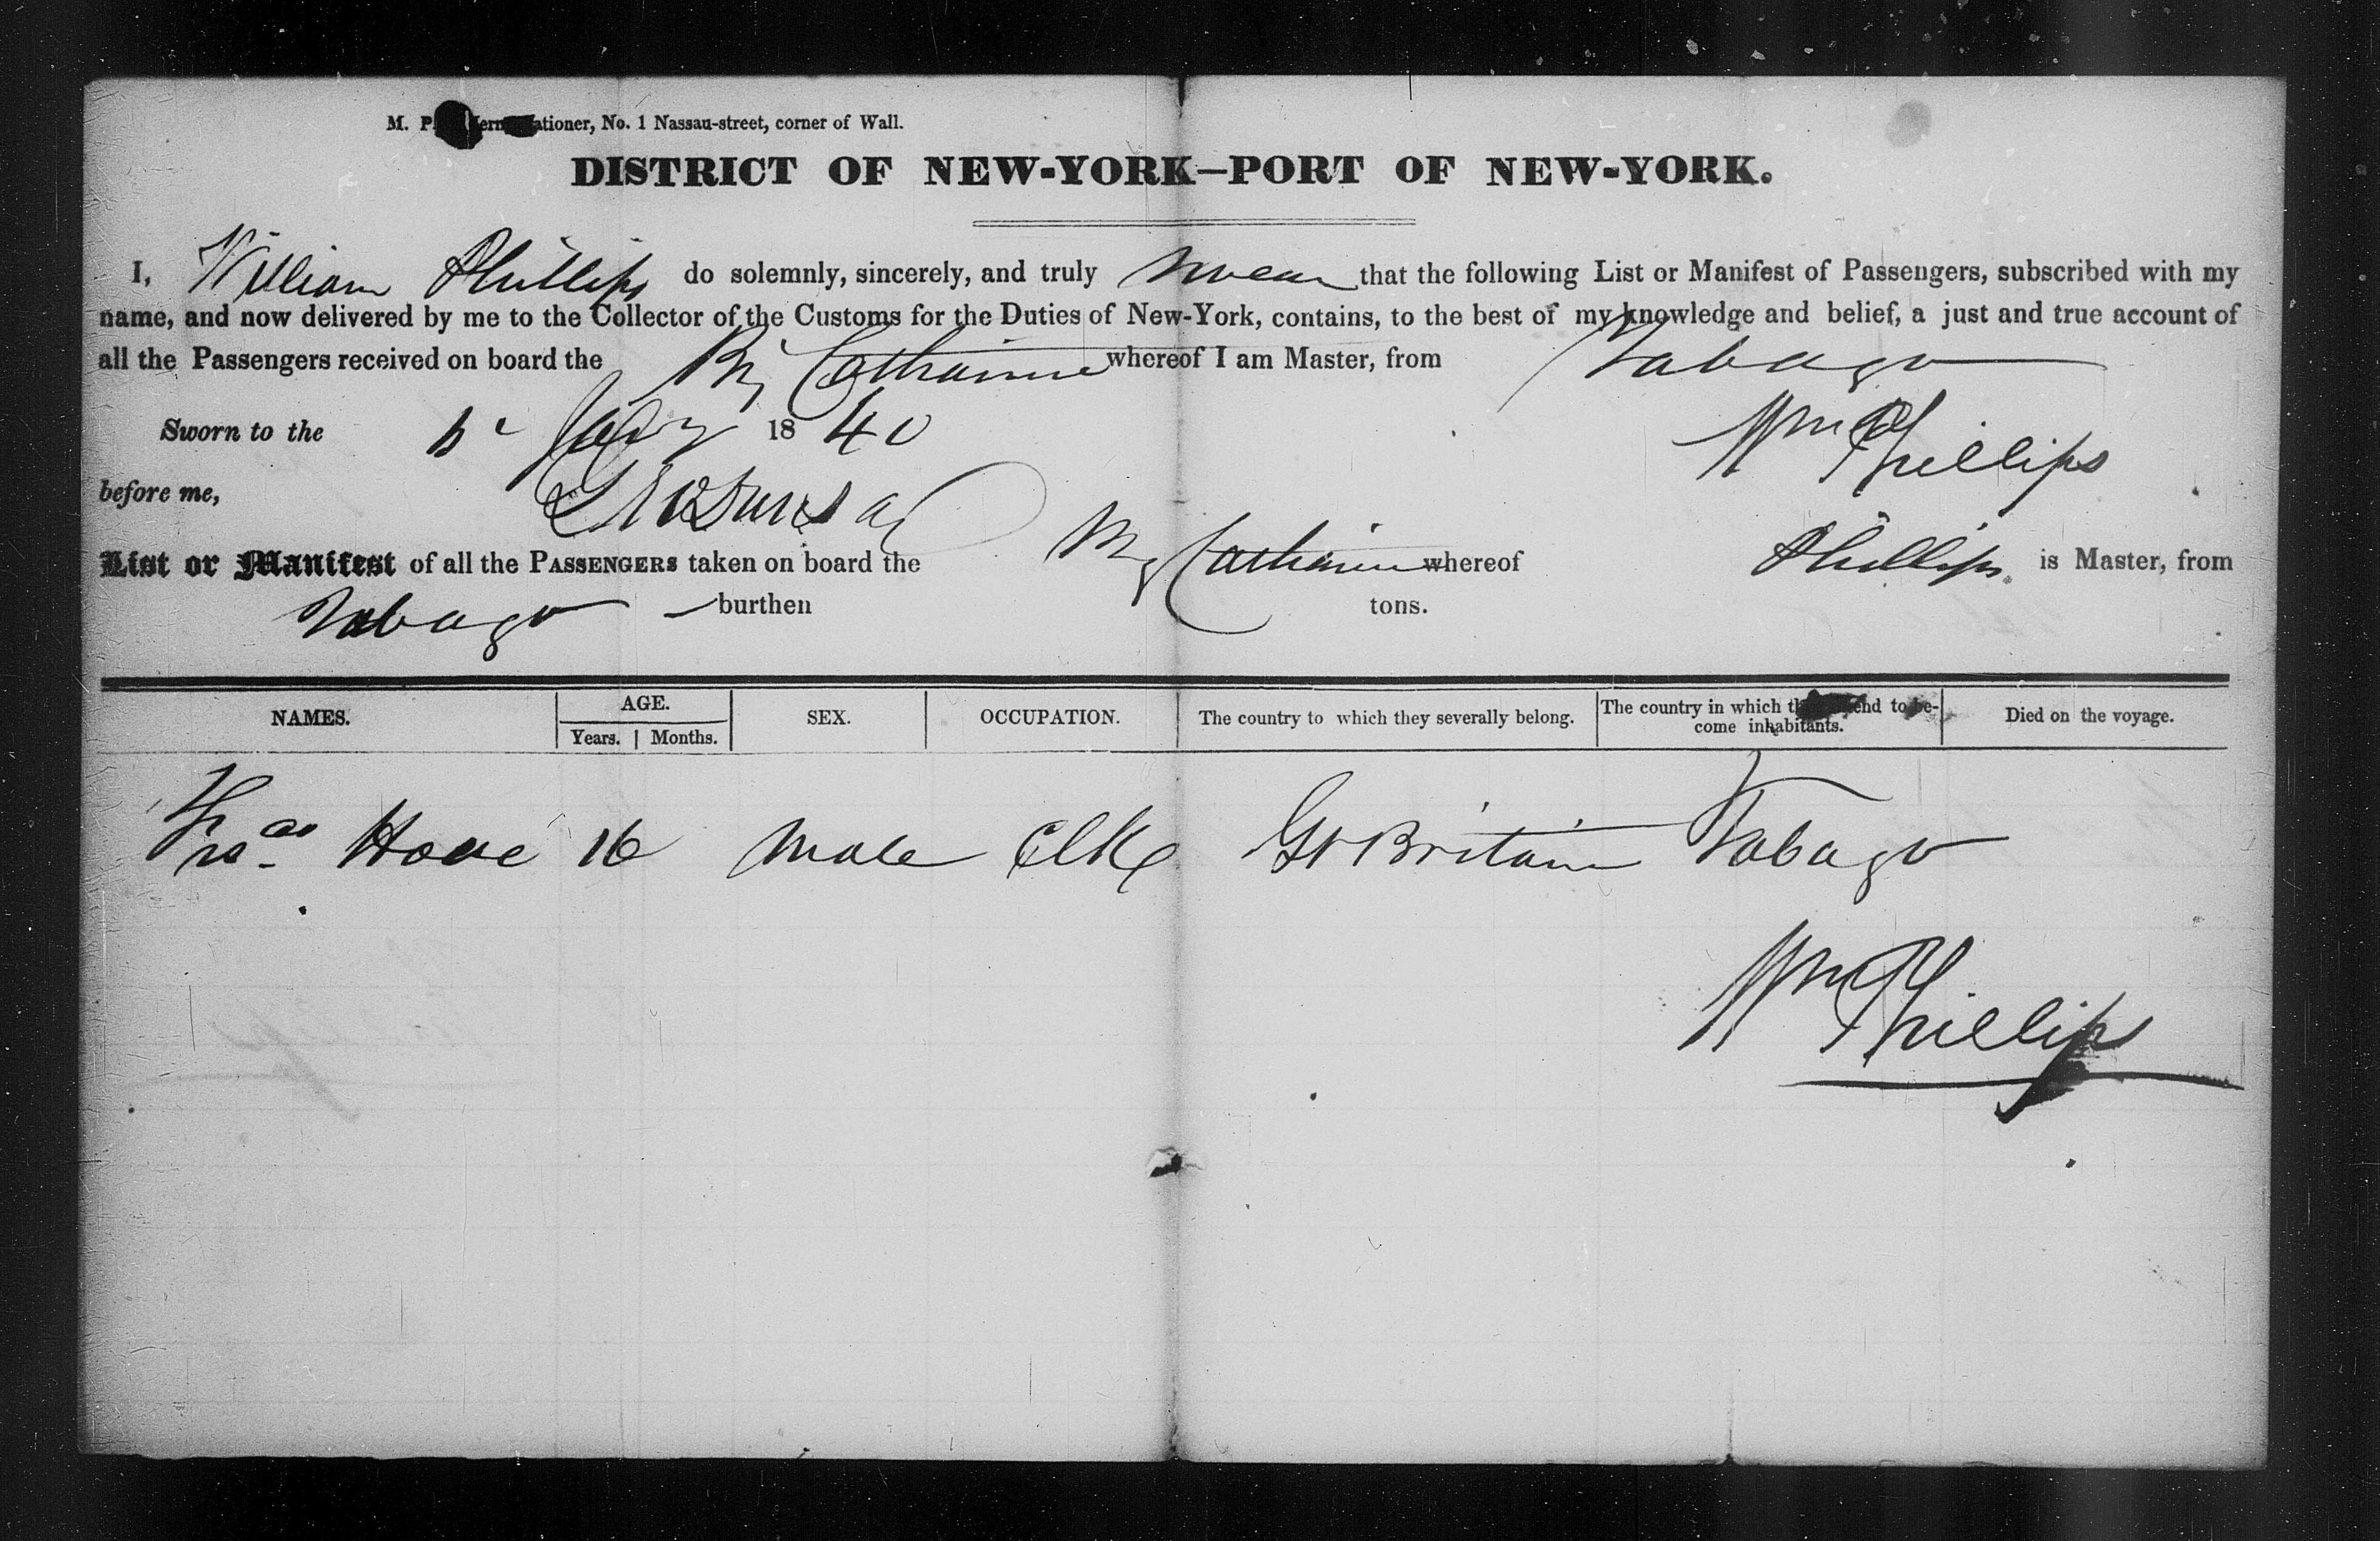 M. P. ationer, No. 1 Nassau-street, corner of Wall.
DISTRICT OF NEW-YORK—PORT OF NEW-YORK.
I, William Phillips do solemnly, sincerely, and truly swear that the following List or Manifest of Passengers, subscribed with my
name, and now delivered by me to the Collector of the Customs for the Duties of New-York, contains, to the best of my knowledge and belief, a just and true account of
all the Passengers received on board the Brig Catharine whereof I am Master, from Tobago
Sworn to the 1840
Wm Phillips
before me,
List or Manifest of all the PASSENGERS taken on board the Brig Catharine whereof Phillips is Master, from
Tobago burthen tons.
NAMES. AGE. SEX. OCCUPATION. The country to which they severally belong. The country in which they intend to be- Died on the voyage.
Years. Months. come inhabitants.
16 Male Clk Gt Britain Tobago
Wm Phillips